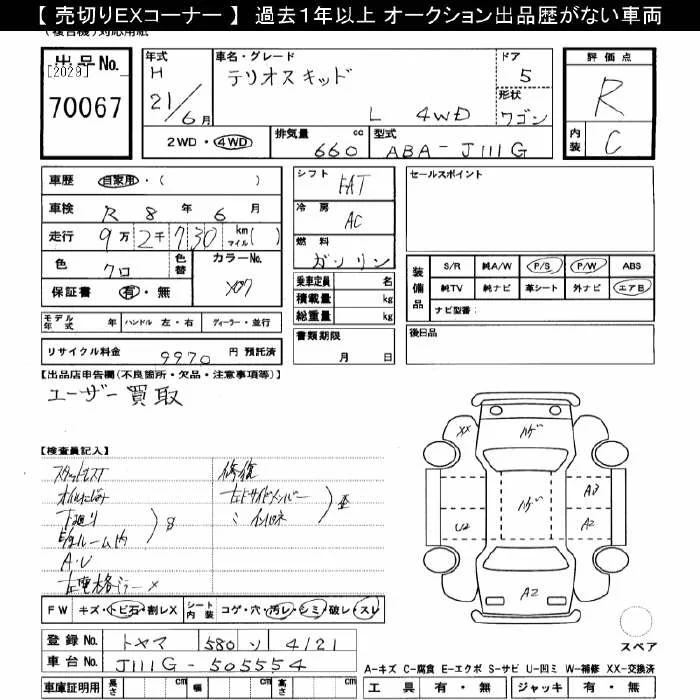 【 売切りEXコーナー 】 過去1年以上 オークション出品歴がない車両
出品No.
[2029]
70067
年式
H
21/6月
車名・グレード
テリオスキッド
L 4WD
ドア
5
形状
ワゴン
評価点
R
内装
C
2WD・4WD
排気量 660 cc
型式 ABA-J111G
車歴 自家用・( )
車検 R 8 年 6 月
走行 9万2千730 km マイル( )
色 クロ
色替
カラーNo. X07
保証書 有・無
モデル年式 年 ハンドル 左・右 ディーラー・並行
リサイクル料金 9970 円 預託済
シフト FAT
冷房 AC
燃料 ガソリン
乗車定員 名
積載量 kg
総重量 kg
書類期限
月 日
セールスポイント
装備品
S/R 純A/W P/S P/W ABS
純TV 純ナビ 革シート 外ナビ エアB
ナビ型番:
後日品
【出品店申告欄(不良箇所・欠品・注意事項等)】
ユーザー買取
【検査員記入】
下廻り
ルーム内
A・U
修復
FW キズ・トビ石・割レX シート内装 コゲ・穴・汚レ・シミ・破レ・スレ
登録No. トヤマ 580 ソ 4121
車台No. J111G-505554
車庫証明用 長さ cm 幅 cm 高さ cm
XX
ハゲ
ハゲ
A3
U2
A2
A2
スペア
A-キズ C-腐食 E-エクボ S-サビ U-凹ミ W-補修 XX-交換済
工具 有・無 ジャッキ 有・無